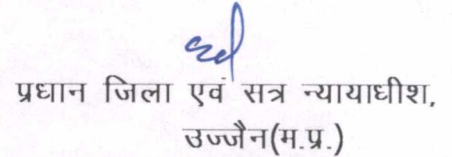 प्रधान जिला एवं सत्र न्यायाधीश,
उज्जैन(म.प्र.)